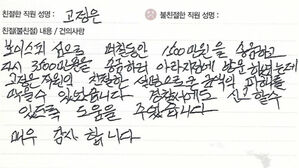 친절한 직원 성명 : 고정은 불친절한 직원 성명 :
친절(불친절) 내용 / 건의사항
보이스피 싱으로 며칠동안 1,000만원을 송금하고
다시 3500만원을 송금하러 아라지점에 방문 하였는데
고정은 직원의 친절한 설명으로 큰 금액의 피해를
막을수 있었습니다. 경찰서에도 신고 할수
있도록 도움을 주셨습니다
매우 감사 합니다